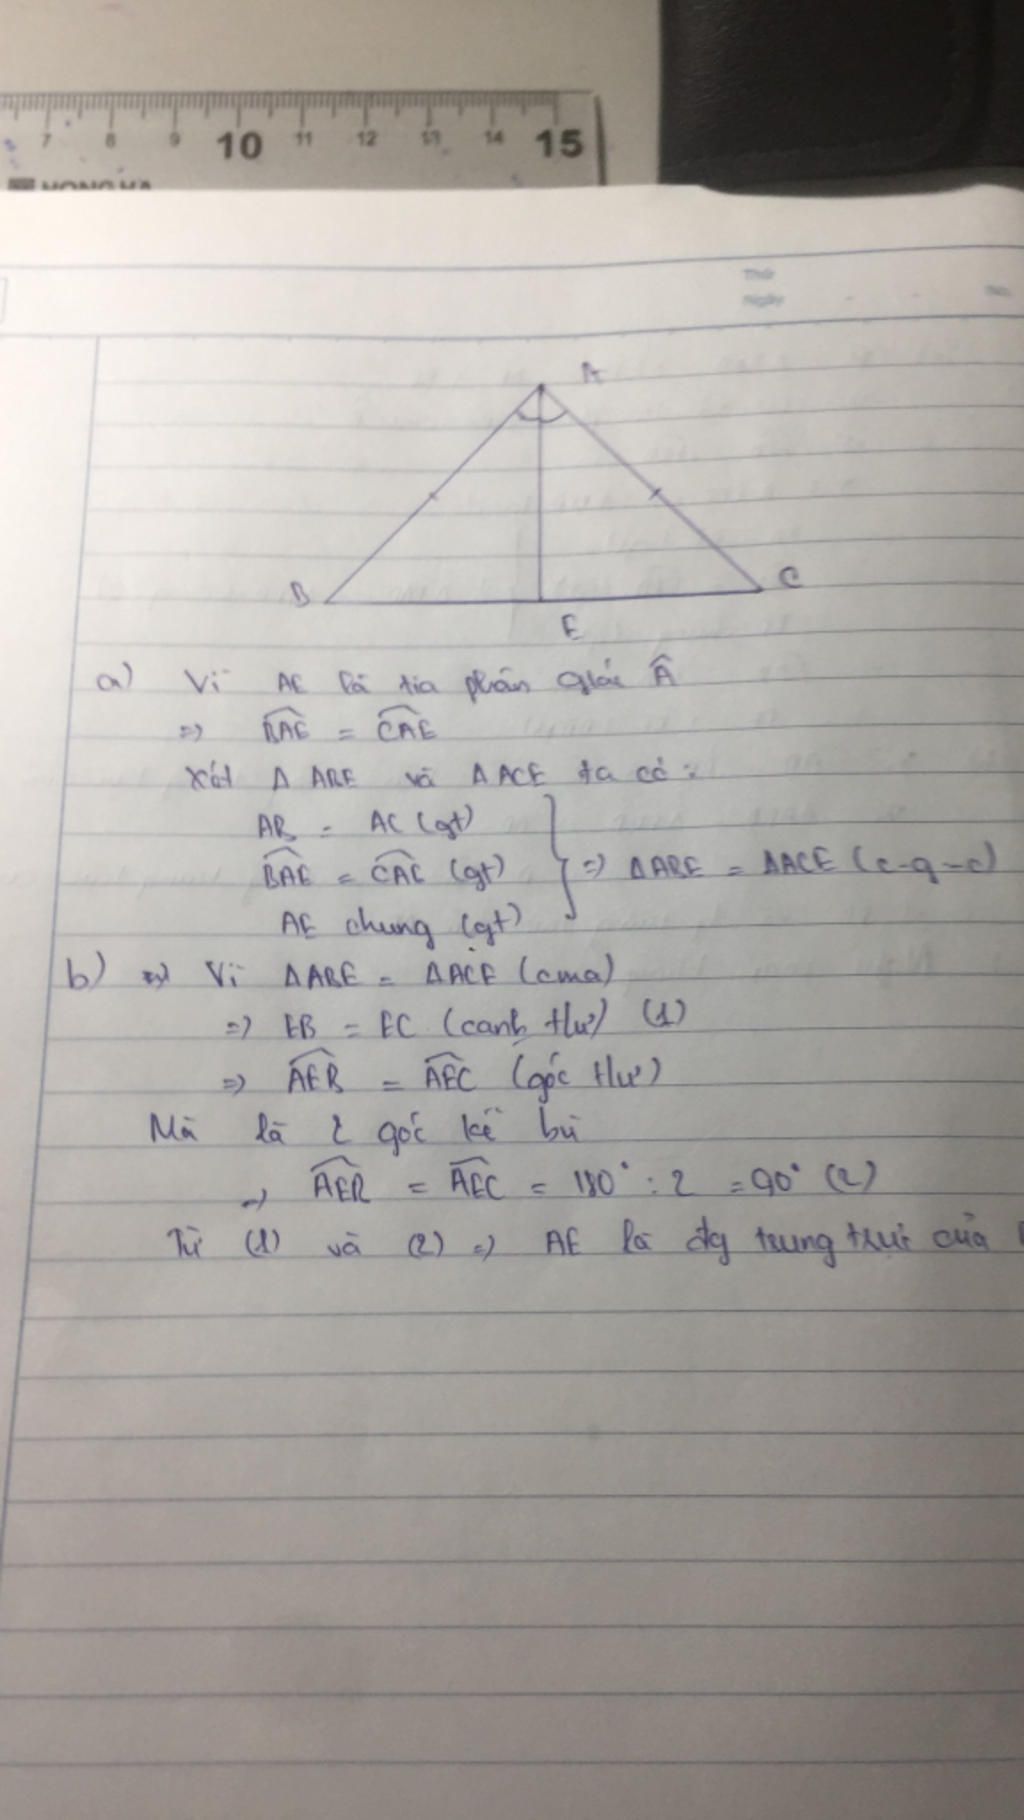 7 8 9 10 11 12 13 14 15
HONG HA
Thứ
Ngày
No.
A
B
C
E
a) Vì AE là tia phân giác Â
=> BAE = CAE
Xét Δ ABE và Δ ACE ta có:
AB = AC (gt)
BAE = CAE (gt) } => ΔABE = ΔACE (c-g-c)
AE chung (gt)
b) Vì ΔABE = ΔACE (cma)
=> EB = EC (cạnh tư) (1)
=> AEB = AEC (góc tư)
Mà là 2 góc kề bù
=> AEB = AEC = 180° : 2 = 90° (2)
Từ (1) và (2) => AE là đg trung trực của